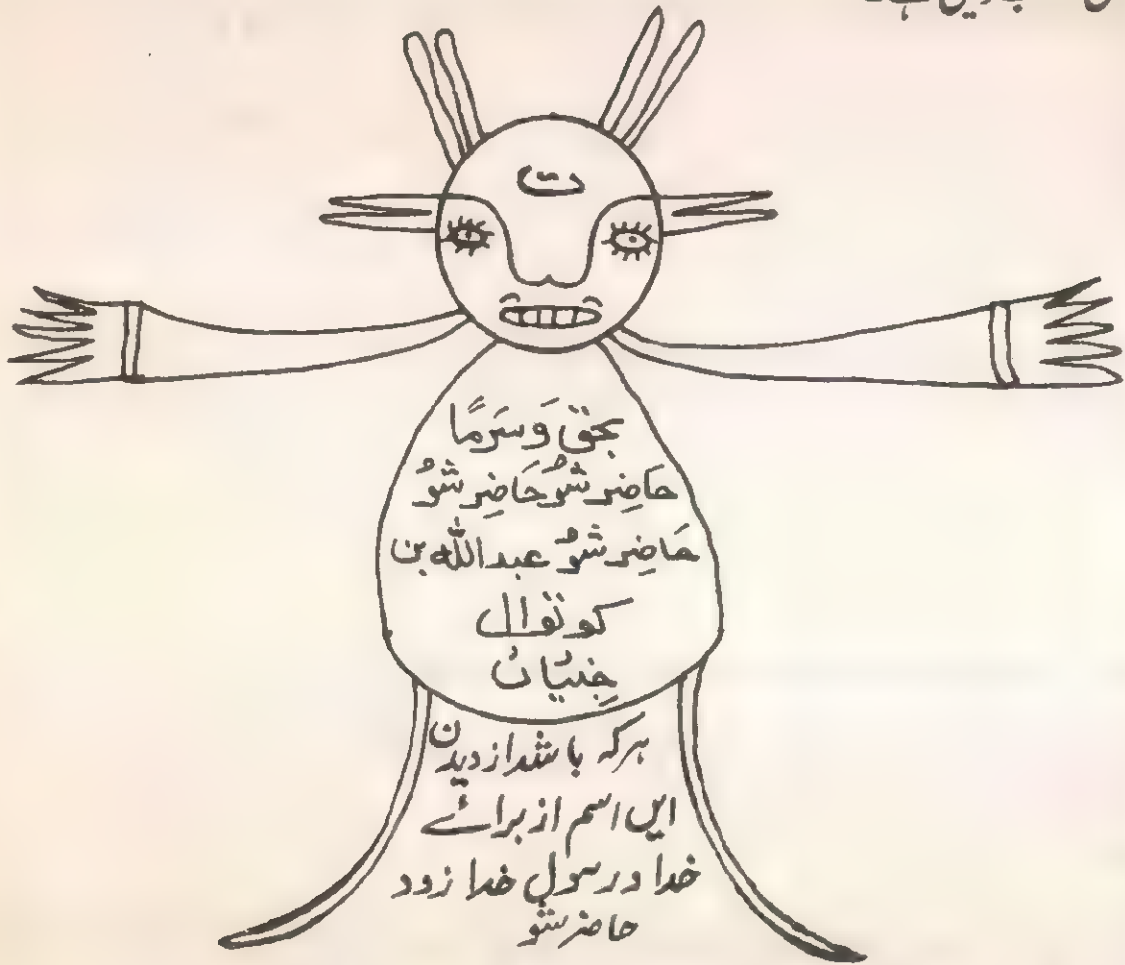 ت
بحق وَسَرمًا
حَاضِر شوُ حَاضِر شوُ
حَاضِر شوُ عبداللہ بن
کوتوال
جِنّیَان
ہرکہ باشد از دیدن
ایں اسم از برائے
خدا و رسول خدا زود
حاضر شو